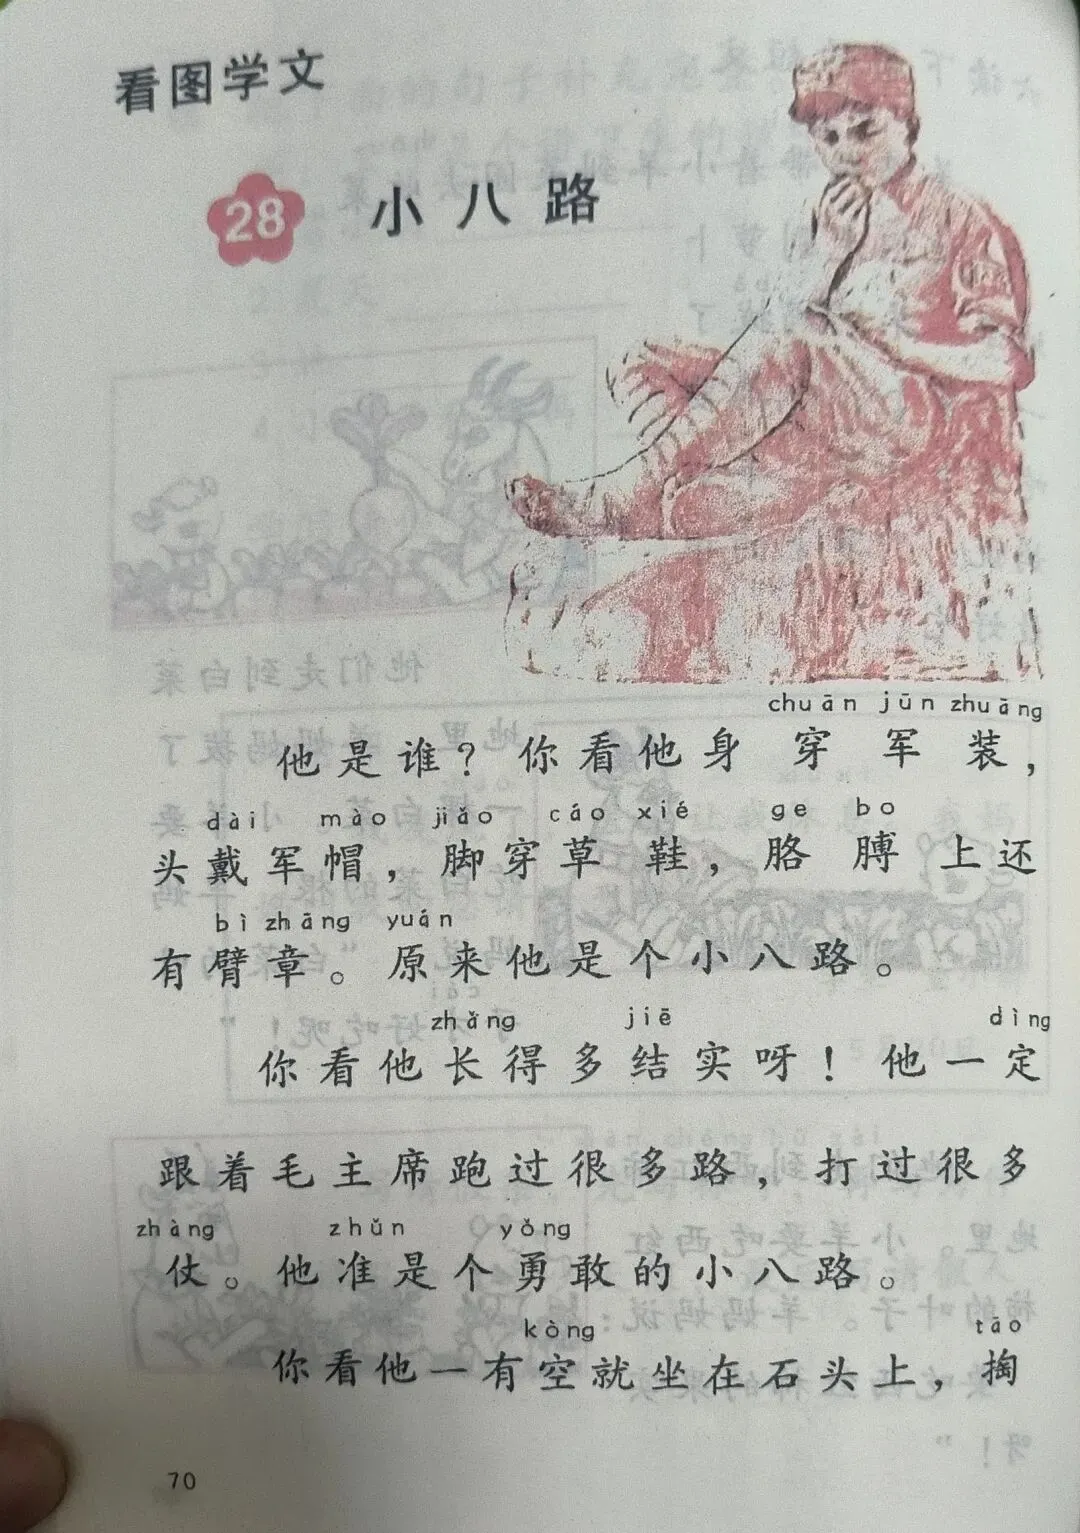 看图学文
28 小八路
chuān jūn zhuāng
他是谁？你看他身穿军装，
dài mào jiǎo cáo xié ge bo
头戴军帽，脚穿草鞋，胳膊上还
bì zhāng yuán
有臂章。原来他是个小八路。
zhǎng jiē dìng
你看他长得多结实呀！他一定
跟着毛主席跑过很多路，打过很多
zhàng zhǔn yǒng
仗。他准是个勇敢的小八路。
kòng tāo
你看他一有空就坐在石头上，掏
70